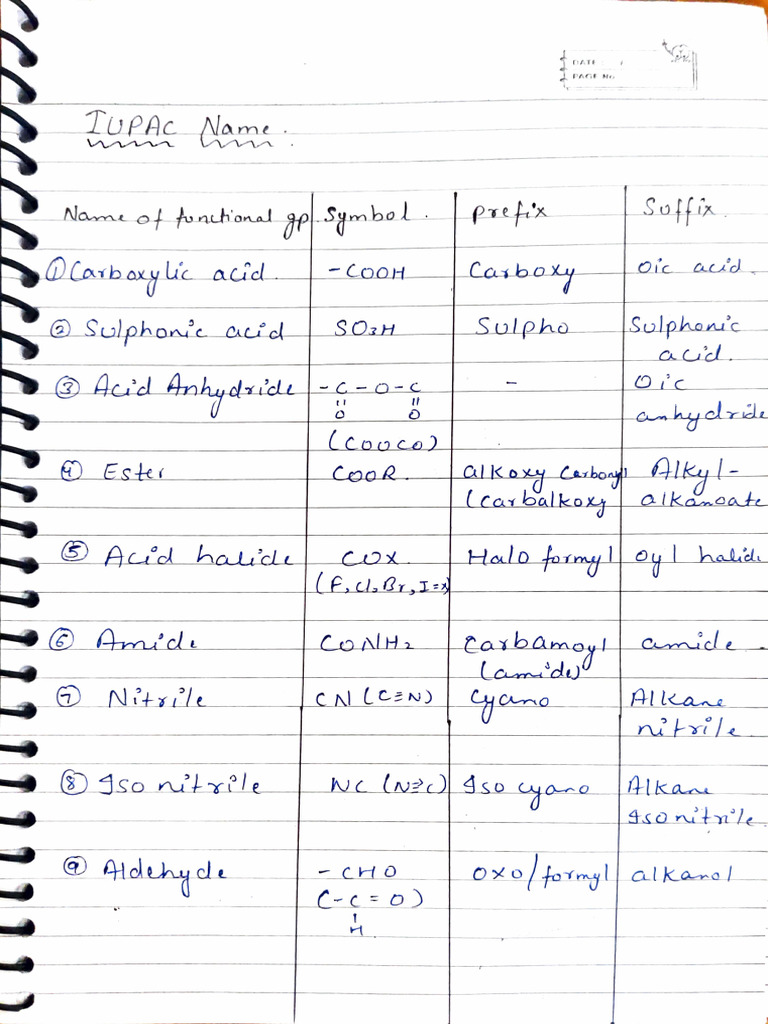 DATE
PAGE NO.
IUPAC Name.
Name of functional gp. Symbol. Prefix Suffix.
① Carboxylic acid. -COOH Carboxy Oic acid.
② Sulphonic acid SO3H Sulpho Sulphonic
acid.
③ Acid Anhydride -C-O-C - Oic
O O anhydride
(COOCO)
④ Ester COOR. alkoxy Carbonyl Alkyl-
(Carbalkoxy alkanoate
⑤ Acid halide COX. Halo formyl oyl halide
(F, Cl, Br, I=x)
⑥ Amide CONH2 Carbamoyl amide.
(amide)
⑦ Nitrile CN (C≡N) Cyano Alkane
nitrile
⑧ Iso nitrile NC (N≡C) Iso cyano Alkane
Iso nitrile.
⑨ Aldehyde -CHO Oxo/formyl alkanol
(-C=O)
H